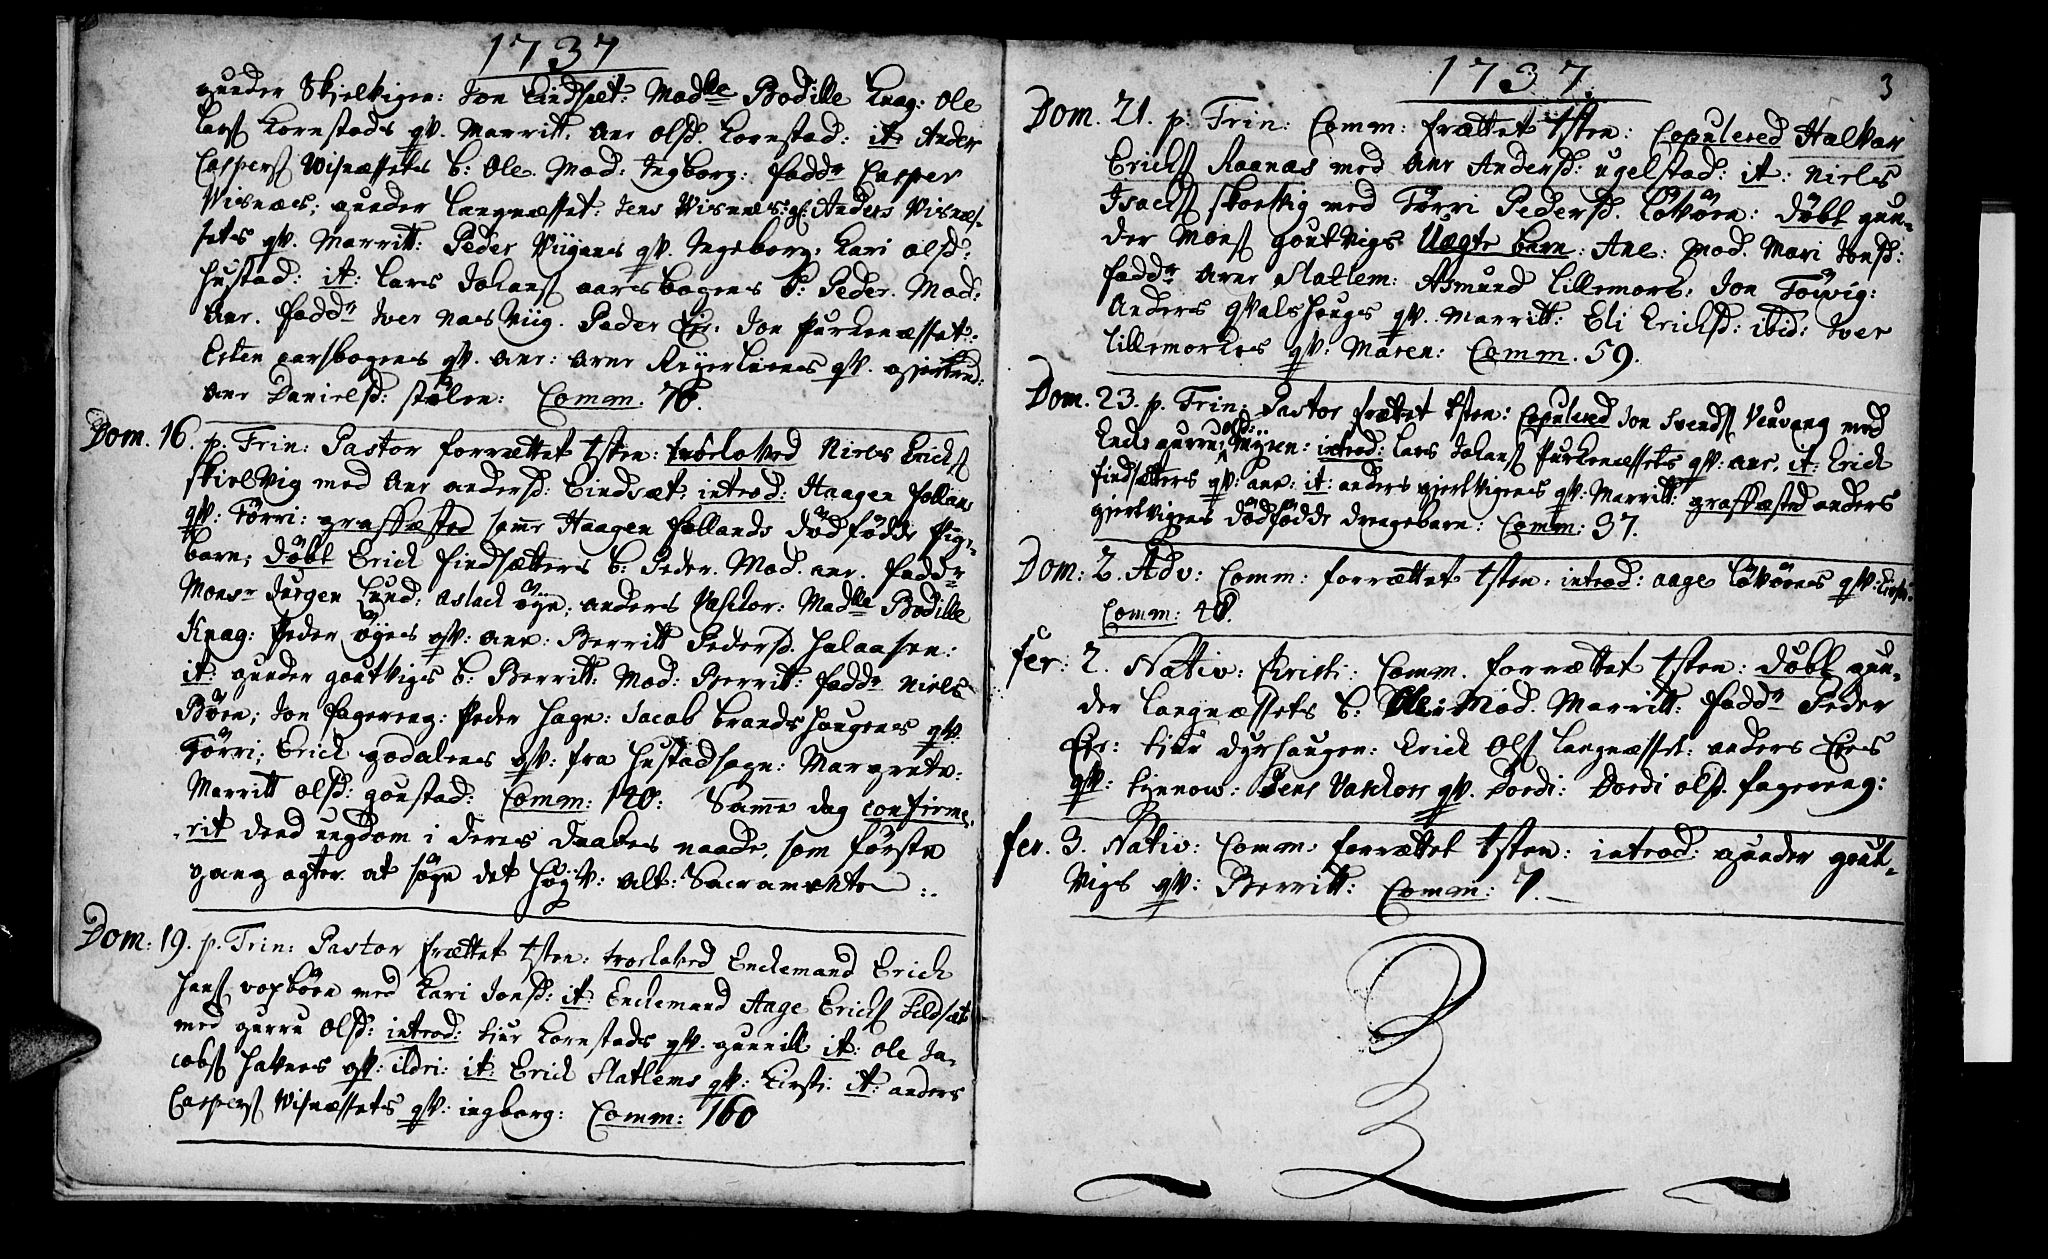 1737
gunder Skjelvigen: Jon Eindsæt: Madlle Bodille Knag: Ole
Lars Kornstads qv. Marritt. Ane Olsd. Kornstad: it: Ander
Caspers Wisnæssets b: Ole. Mod: Ingborg: faddr Casper
Visnæs; gunder Langnæsset: Jens Visnæs: gl: Anders Visnæs-
sets qv. Marritt: Peder Viigens qv. Ingeborg: Kari Olsd:
Hustad: it: Lars Johans aarsbogens b: Peder. Mod:
Ane. faddr Iver Nas Viig. Peder Eje: Jon Furkenæsset:
Esten aarsbogens qv. Ane: Arne Rejerliens qv. gjertrud:
Ane Danielsd: Stölen: Comm. 76.
Dom. 16. p. Trin: Pastor forrættet tsten: troelo​ved Niels Ericks
Skielvig med Ane Andersd: Eindsæt: introd: Haagen Follands
qv: Törri: graffæsted samme Haagen Follands dödfödde Pige-
barn; döbt Erick Findsætters b: Peder. Mod. Ane. faddr
Monsr Jurgen Lund: Aslack öyn; Anders Vaschor: Madlle Bodille
Knag: Peder öyes qv: Ane: Berritt Pedersd. Halaasen:
it: gunder goutvigs b: Berritt: Mod: Berritt: faddr Niels
Böen; Jon fagereng: Peder Hagn: Jacob brandshougens qv:
Törri; Erick godalens qv: fra Hustadsogn: Margrete:
Marritt Olsd: goustad: Comm: 120: Samme dag confirme-
rit dend ungdom i deres Daabes naade, som förste
gang agter at söge det Högv: Alt: Sacramente :.
Dom: 19. p. Trin: Pastor frættet tsten: troeloved Enckemand Erick
Hans vaxböen med Kari Jonsd: it: Enckemand Aage Ericks Eldsæt
med gurru Olsd: introd: Siur Kornstads qv. gunnill it: Ole Ja-
cobs Haknes qv: ildri: it: Erick Slatlems qv: Kirsti: it: anders
Caspers Wisnæssets qv: ingborg: Comm: 160
1737.
3
Dom. 21. p. Trin: Comm: frættet tsten: Copulered Halvar
Ericks Raanæs med Ane Andersd: ugelstad: it: Niels
Isacks Skorsvig med Törri Pedersd. Lövöen: döbt gun-
der Mons goutvigs Uægte barn: Ane: Mod. Mari Jonsd:
faddr Arne Slatlem: Asmund Lillemork: Jon Törvig:
Anders Qvalshougs qv. Marritt: Eli Ericksd: ibid: Iver
Lillemorkes qv: Maren: Comm. 59.
Dom. 23. p. Trin: Pastor frættet tsten: Copulered Jon Svends Veuvang med
Encke gurru olsd: Myren: introd: Lars Johans Furkenæssets qv: Ane, it: Erick
findsætters qv: ane: it: anders gjerlvigens qv: Marritt: graffæsted anders
gjerlvigens dödfödde drengebarn: Comm: 37.
Dom: 2. Adv: Comm: forrættet tsten: introd: aage Lövöens qv: Kirsti:
Comm: 48.
fer: 2. Nativ: Christi: Comm. forrættet tsten: döbt gun-
der Langnæssets b: Ole: Mod. Marritt: faddr Peder
Eje: Siur Dyrhaugen: Erick Ols Langnæsset: anders Ejes
qv: Synnow: Jens Vaschors qv. Dordi: Dordi Olsd. fagereng:
fer. 3. Nativ: Comm: forrættet tsten: introd: gunder gout-
vigs qv: Berritt: Comm: 7.